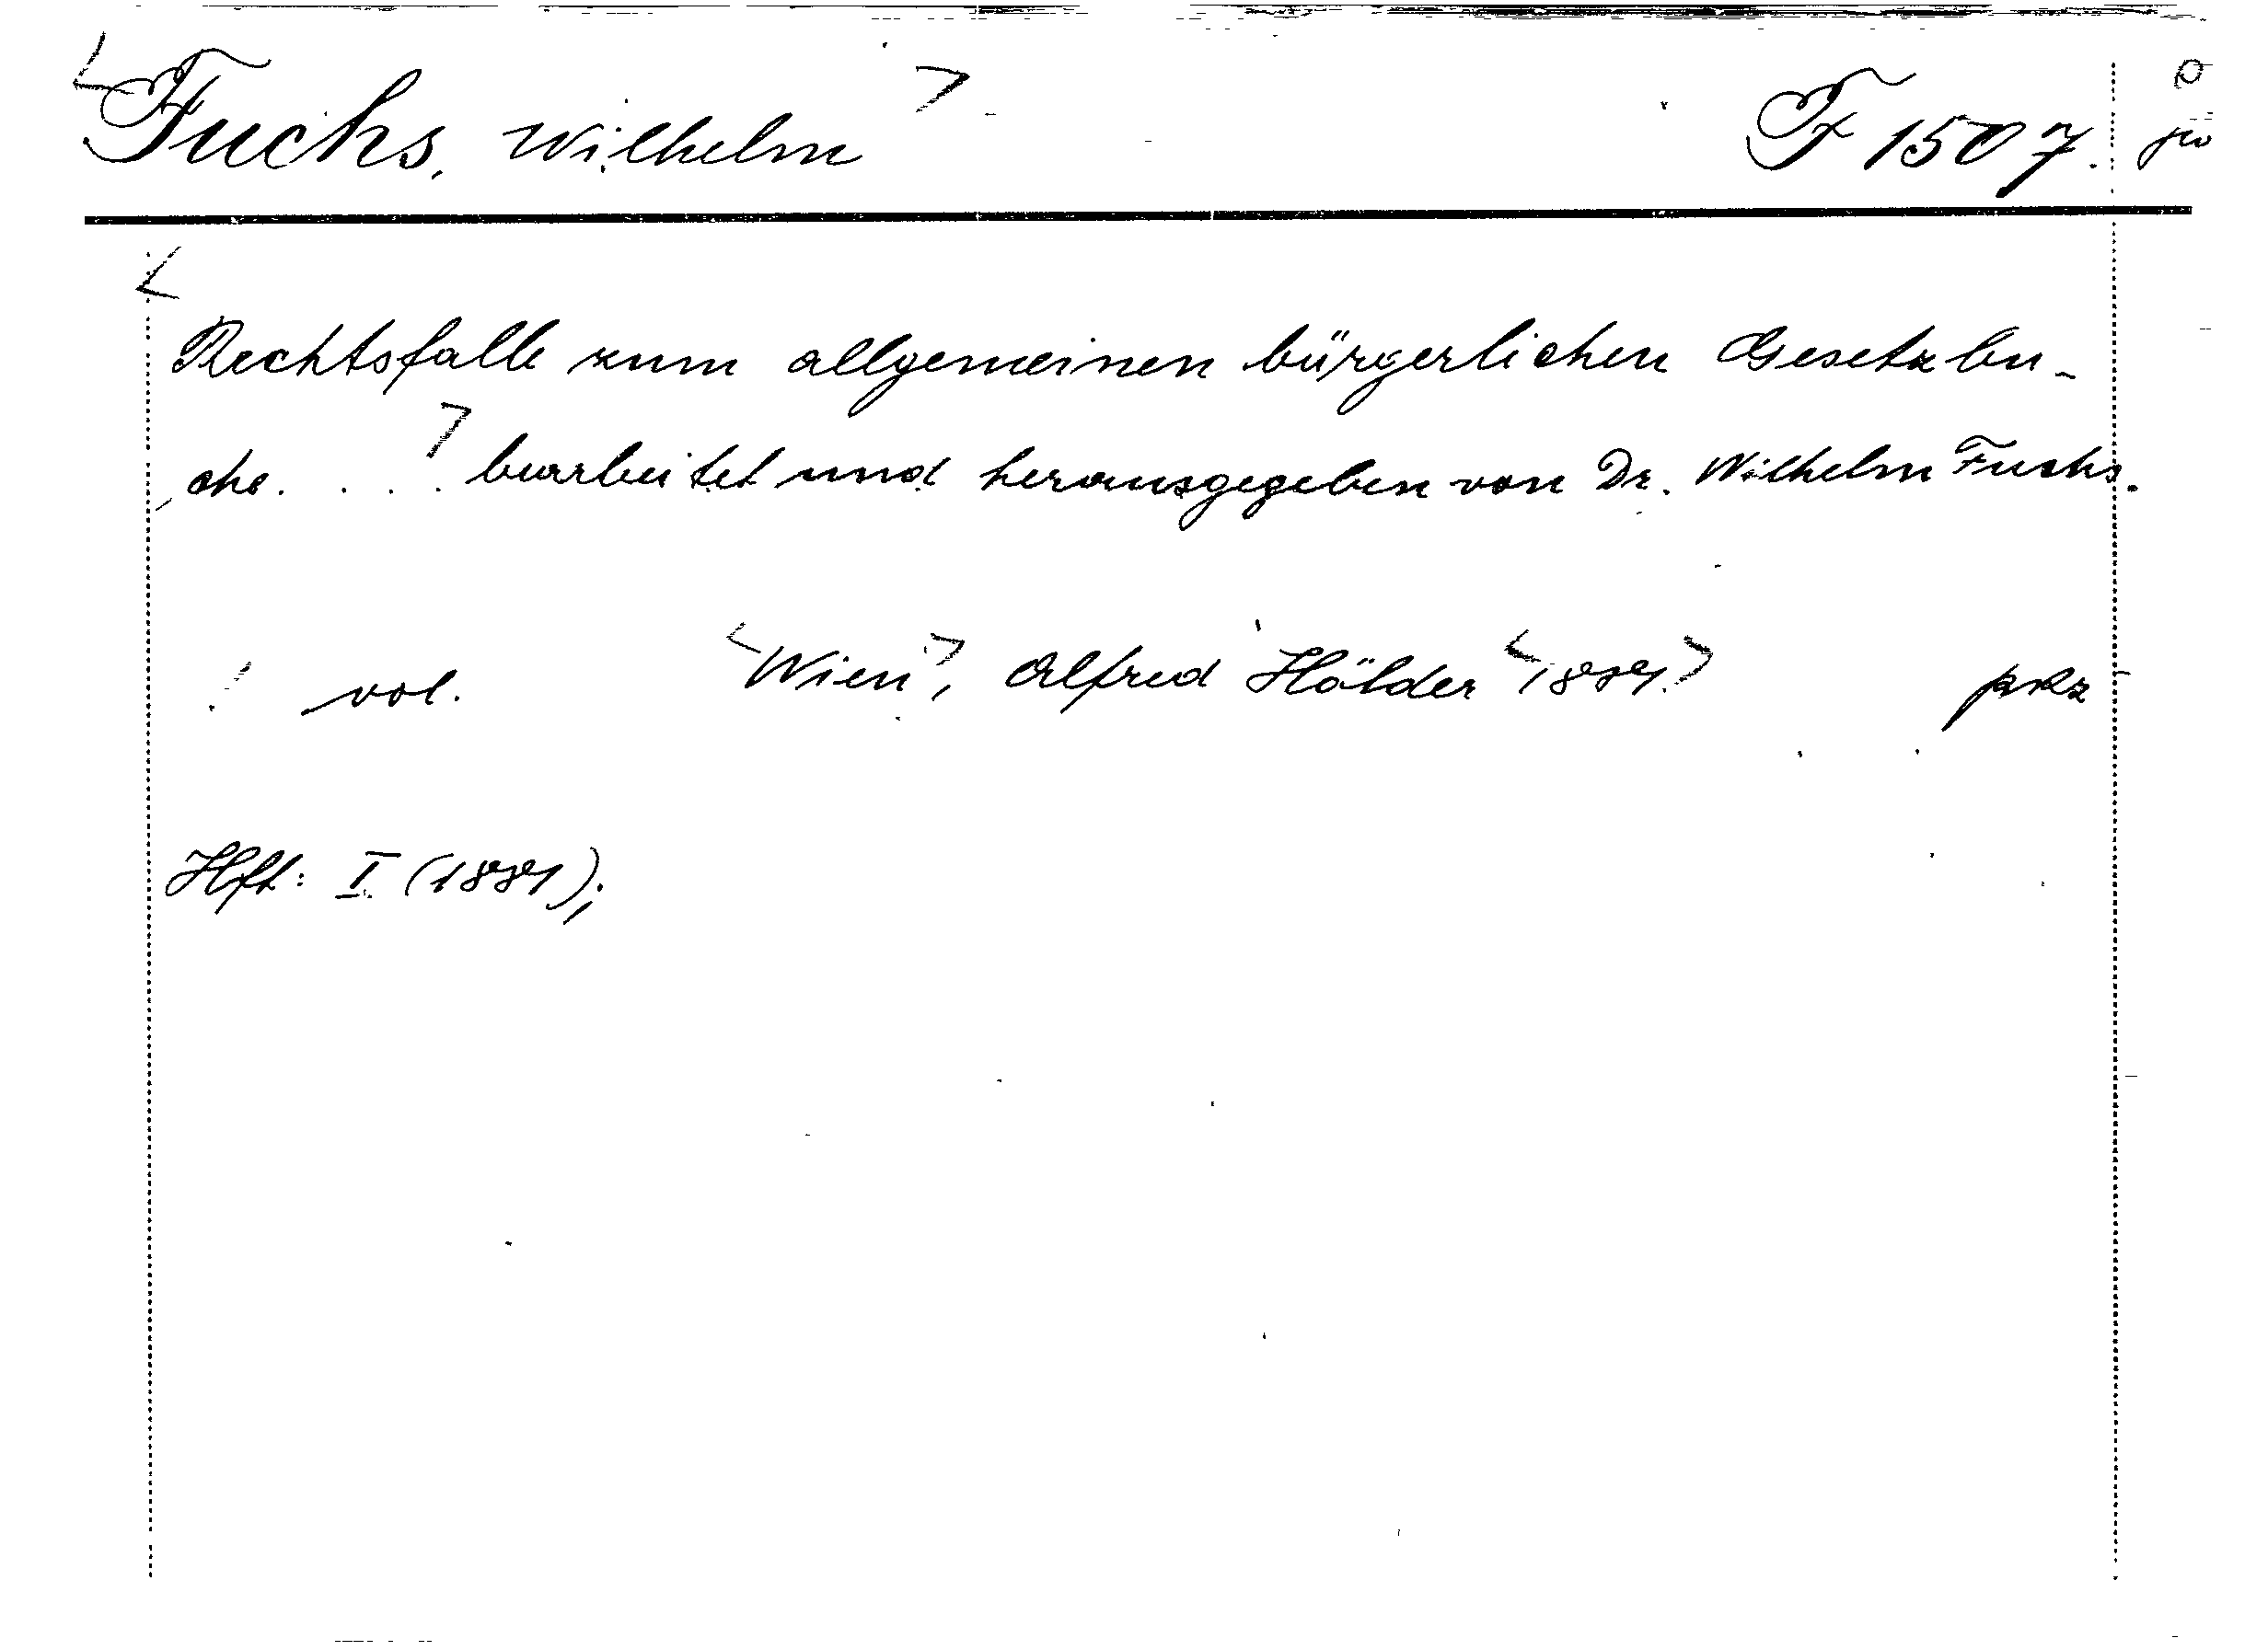 <Fuchs, Wilhelm> F 1507.
<Rechtsfalle zum allgemeinen bürgerlichen Gesetzbu-
che. . . .> bearbeitet und herausgegeben von Dr. Wilhelm Fuchs.
vol. <Wien>, Alfred Hölder <1881.>
Hft: I (1881);